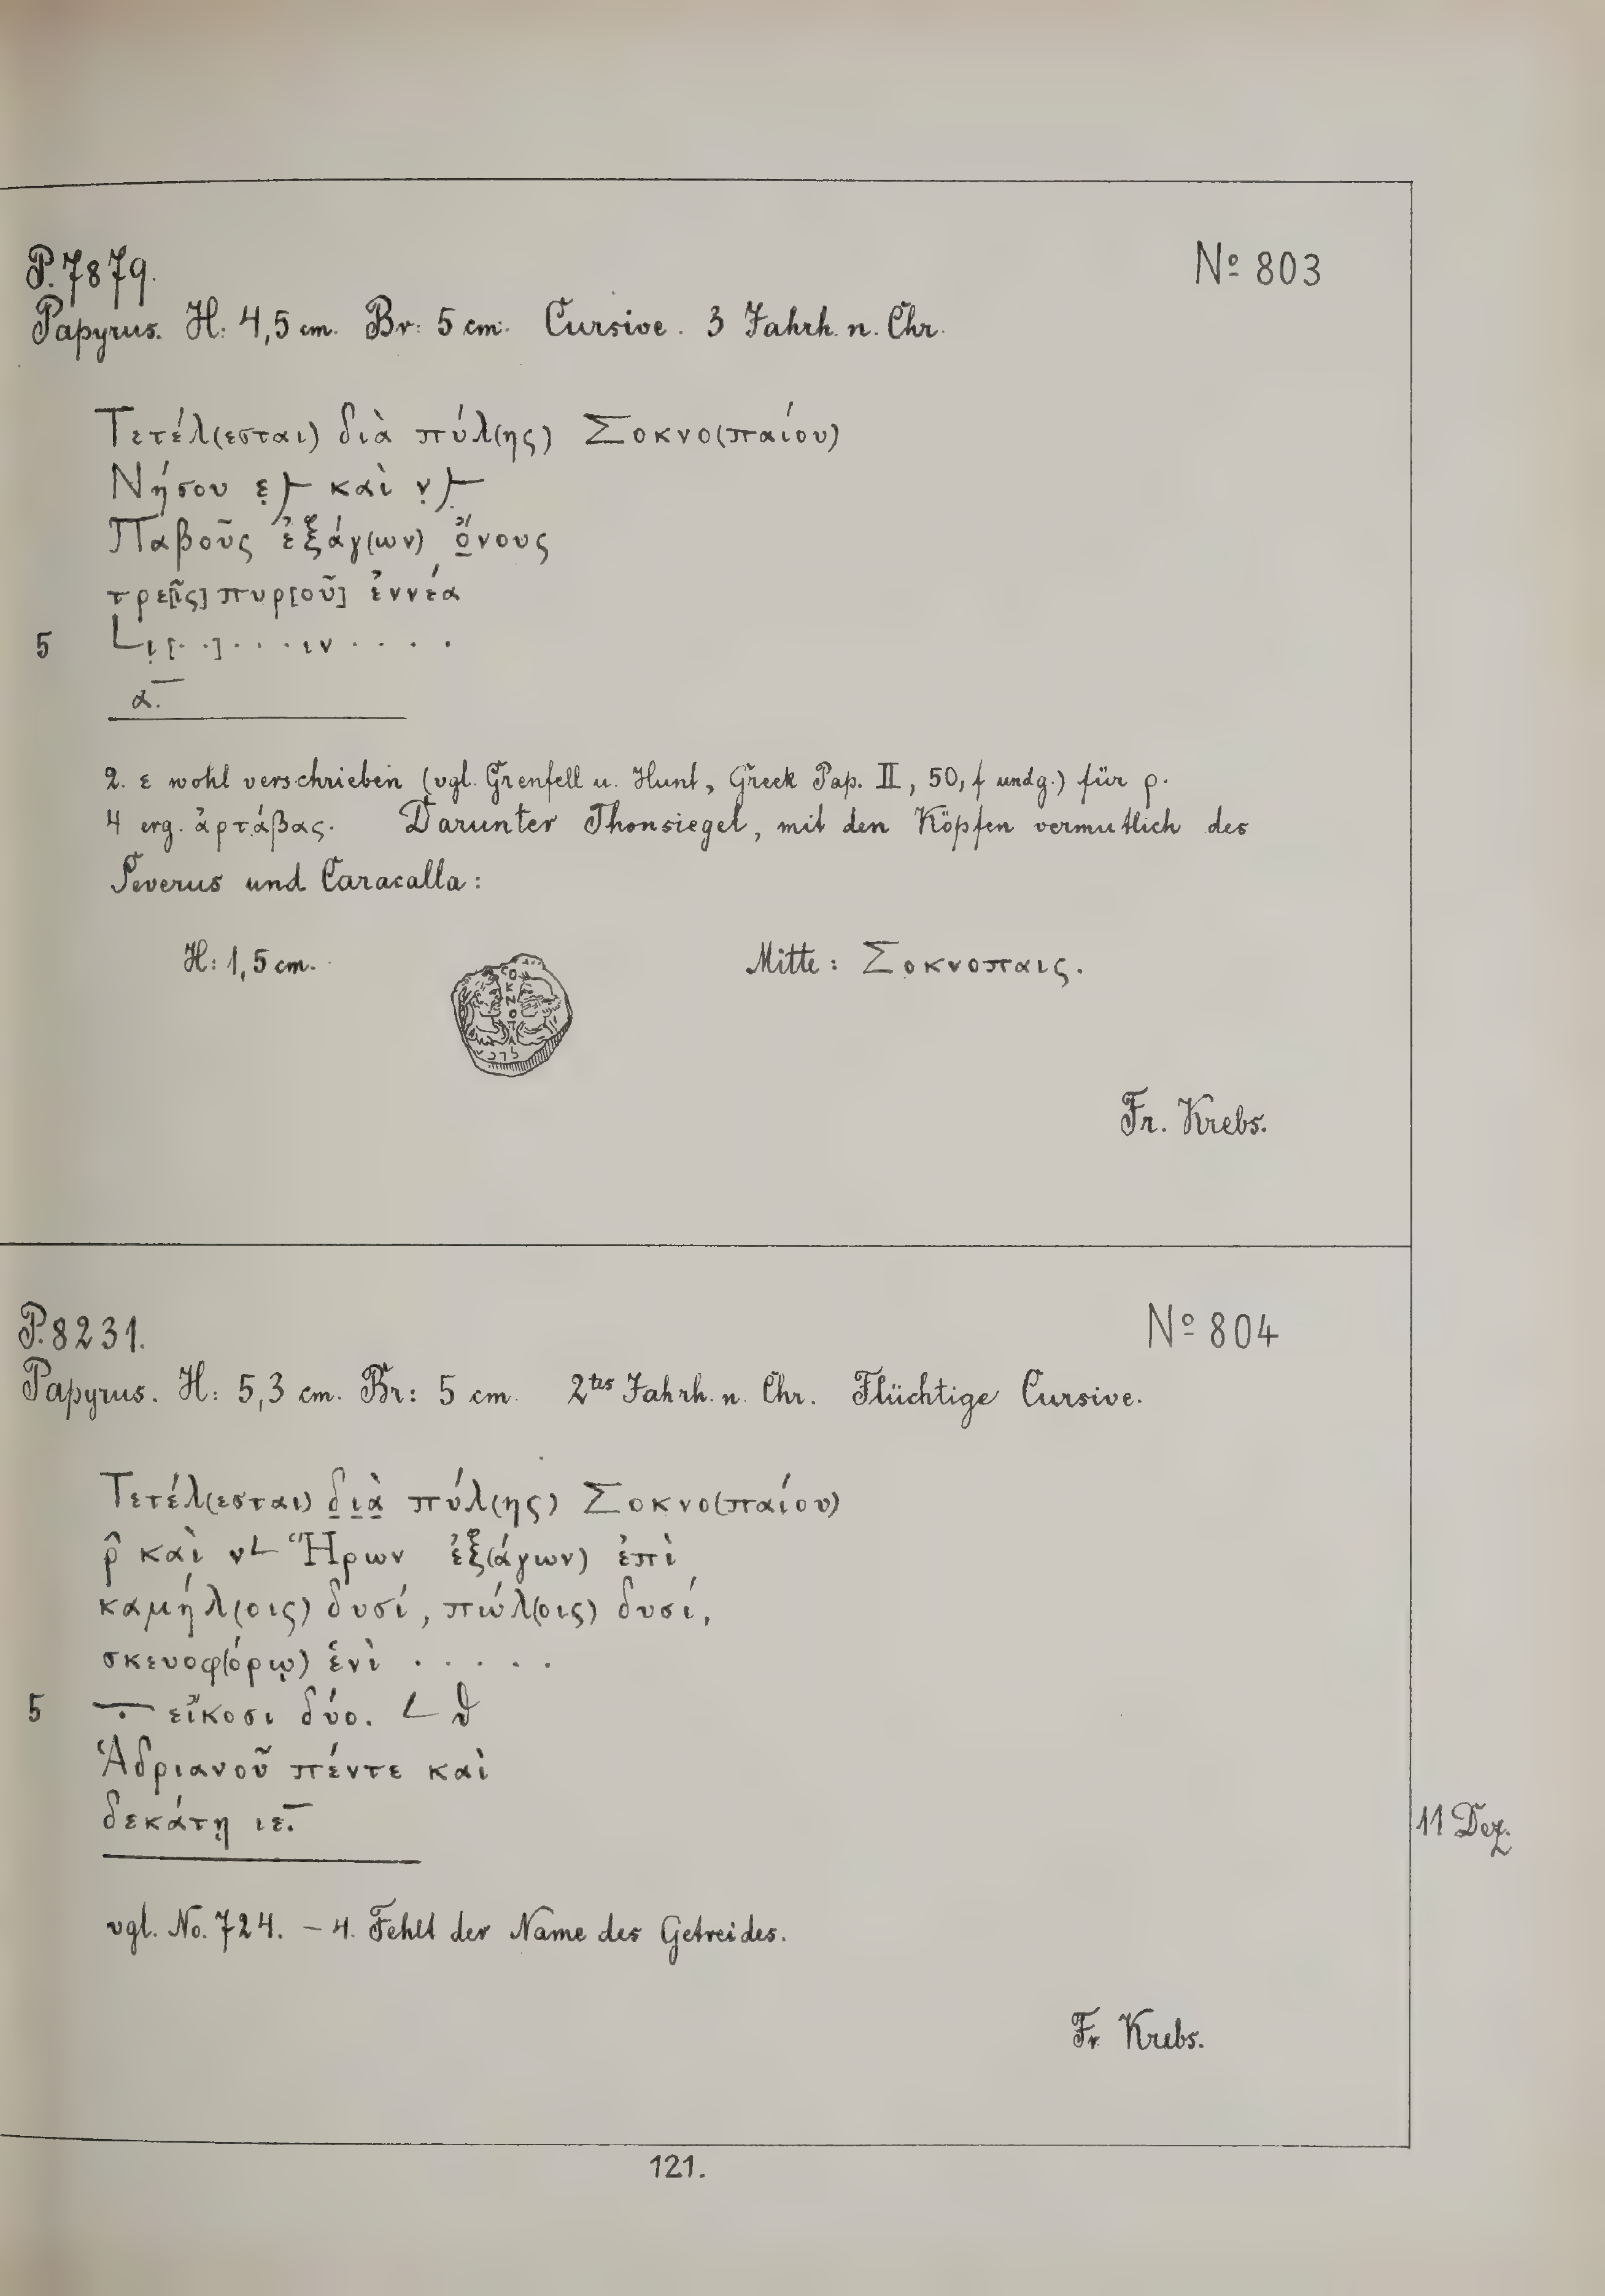 P. 7879.
Nº 803
Papyrus. H: 4,5 cm. Br: 5 cm. Cursive. 3 Jahrh. n. Chr.
Τετέλ(εσται) διὰ πύλ(ης) Σοκνο(παίου)
Νήσου ε̣⳨ καὶ ν̣⳨
Παβοῦς ἐξάγ(ων) ὄ̣νους
τρε[ῖς] πυρ[οῦ] ἐννέα
5 Lι̣[· ·]· · · ιν · · · ·
α.‾
2. ε wohl verschrieben (vgl. Grenfell u. Hunt, Greek Pap. II, 50, f und g.) für ρ.
4 erg. ἀρτάβας. Darunter Thonsiegel, mit den Köpfen vermutlich des
Severus und Caracalla:
H: 1,5 cm.
Mitte: Σοκνοπαις.
Fr. Krebs.
P. 8231.
Nº 804
Papyrus. H: 5,3 cm. Br: 5 cm. 2tes Jahrh. n. Chr. Flüchtige Cursive.
Τετέλ(εσται) δ̣ι̣ὰ̣ πύλ(ης) Σοκνο(παίου)
ρ̂ καὶ νL Ἥρων ἐξ(άγων) ἐπὶ
καμήλ(οις) δυσί, πώλ(οις) δυσί,
σκευοφ(όρῳ) ἑνὶ · · · · ·
5 ÷ εἴκοσι δύο. L θ
Ἁδριανοῦ πέντε καὶ
δεκάτῃ ιε.‾
11 Dez.
vgl. No. 724. – 4. Fehlt der Name des Getreides.
Fr Krebs.
121.